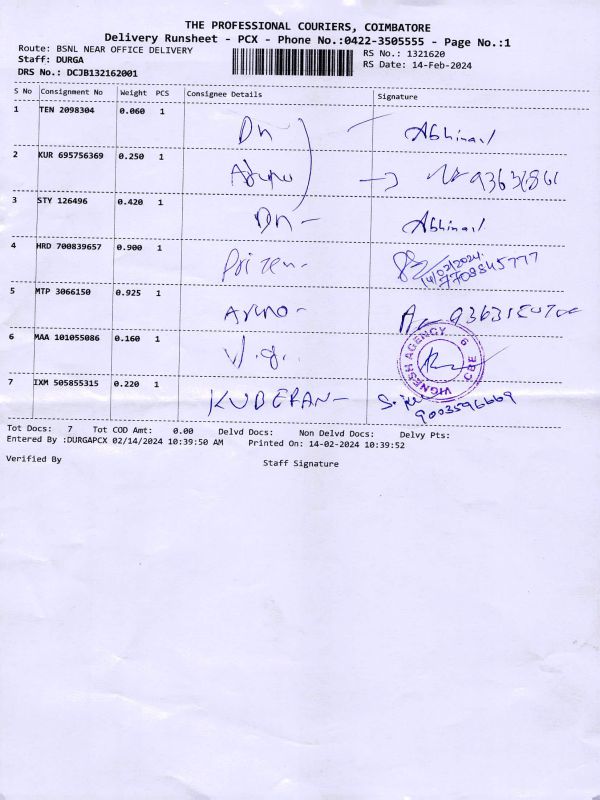 THE PROFESSIONAL COURIERS, COIMBATORE
Delivery Runsheet - PCX - Phone No.:0422-3505555 - Page No.:1
Route: BSNL NEAR OFFICE DELIVERY RS No.: 1321620
Staff: DURGA RS Date: 14-Feb-2024
DRS No.: DCJB132162001
S No Consignment No Weight PCS Consignee Details Signature
1 TEN 2098304 0.060 1 Dn
2 KUR 695756369 0.250 1
3 STY 126496 0.420 1 Dn -
4 HRD 700839657 0.900 1 14/02/2024
5 MTP 3066150 0.925 1
6 MAA 101055086 0.160 1 VIGNESH AGENCY CBE
7 IXM 505855315 0.220 1 KUBERAN - 9003596669
Tot Docs: 7 Tot COD Amt: 0.00 Delvd Docs: Non Delvd Docs: Delvy Pts:
Entered By :DURGAPCX 02/14/2024 10:39:50 AM Printed On: 14-02-2024 10:39:52
Verified By Staff Signature